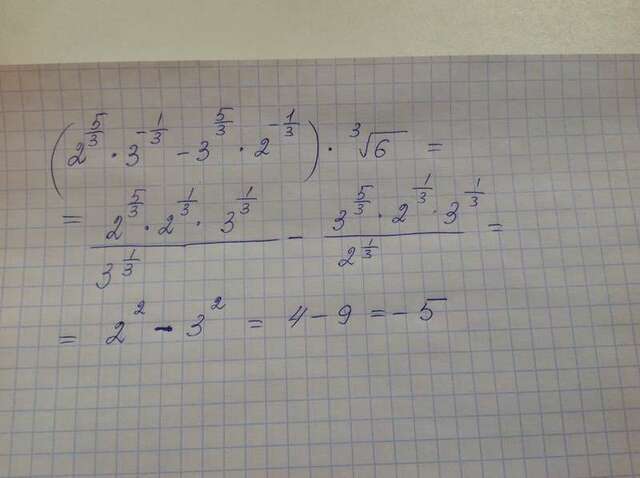 (2^{5/3} · 3^{-1/3} - 3^{5/3} · 2^{-1/3}) · ∛6 =
= \frac{2^{5/3} · 2^{1/3} · 3^{1/3}}{3^{1/3}} - \frac{3^{5/3} · 2^{1/3} · 3^{1/3}}{2^{1/3}} =
= 2^2 - 3^2 = 4 - 9 = -5